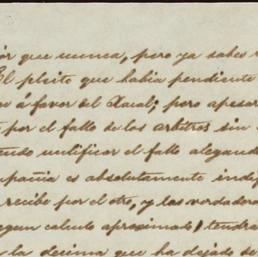 que nunca, pero ya sabes
El pleito que habia pendiente
á favor del Xacal; pero apesar
por el fallo de los arbitros sin
notificar el fallo alegando
es absolutamente
recibe por el otro, y las verdadera
calculo aproximado, tendra
la decima que ha dejado de